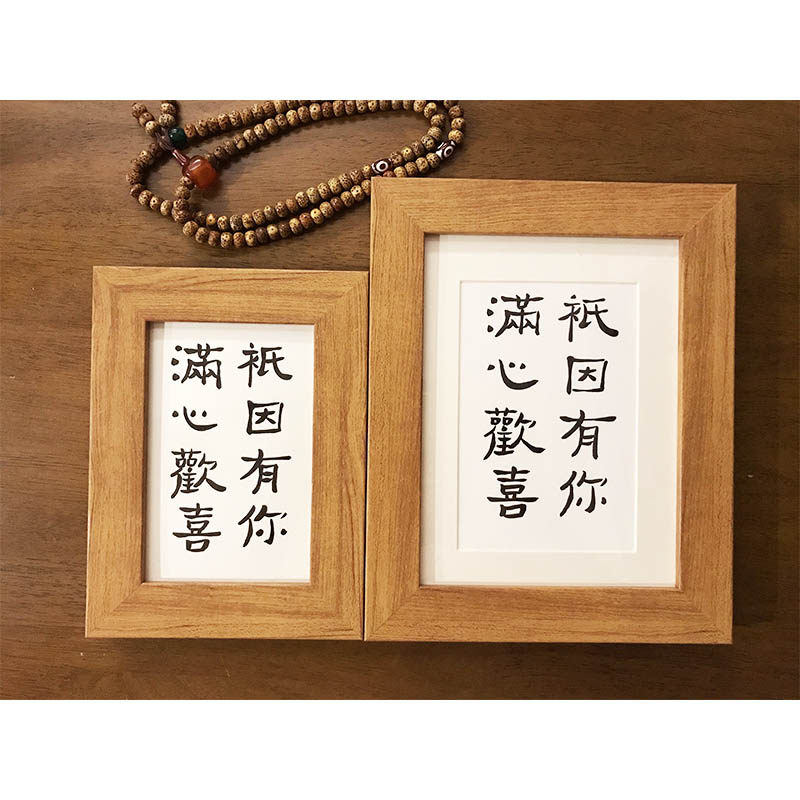 祇因有你
滿心歡喜
祇因有你
滿心歡喜